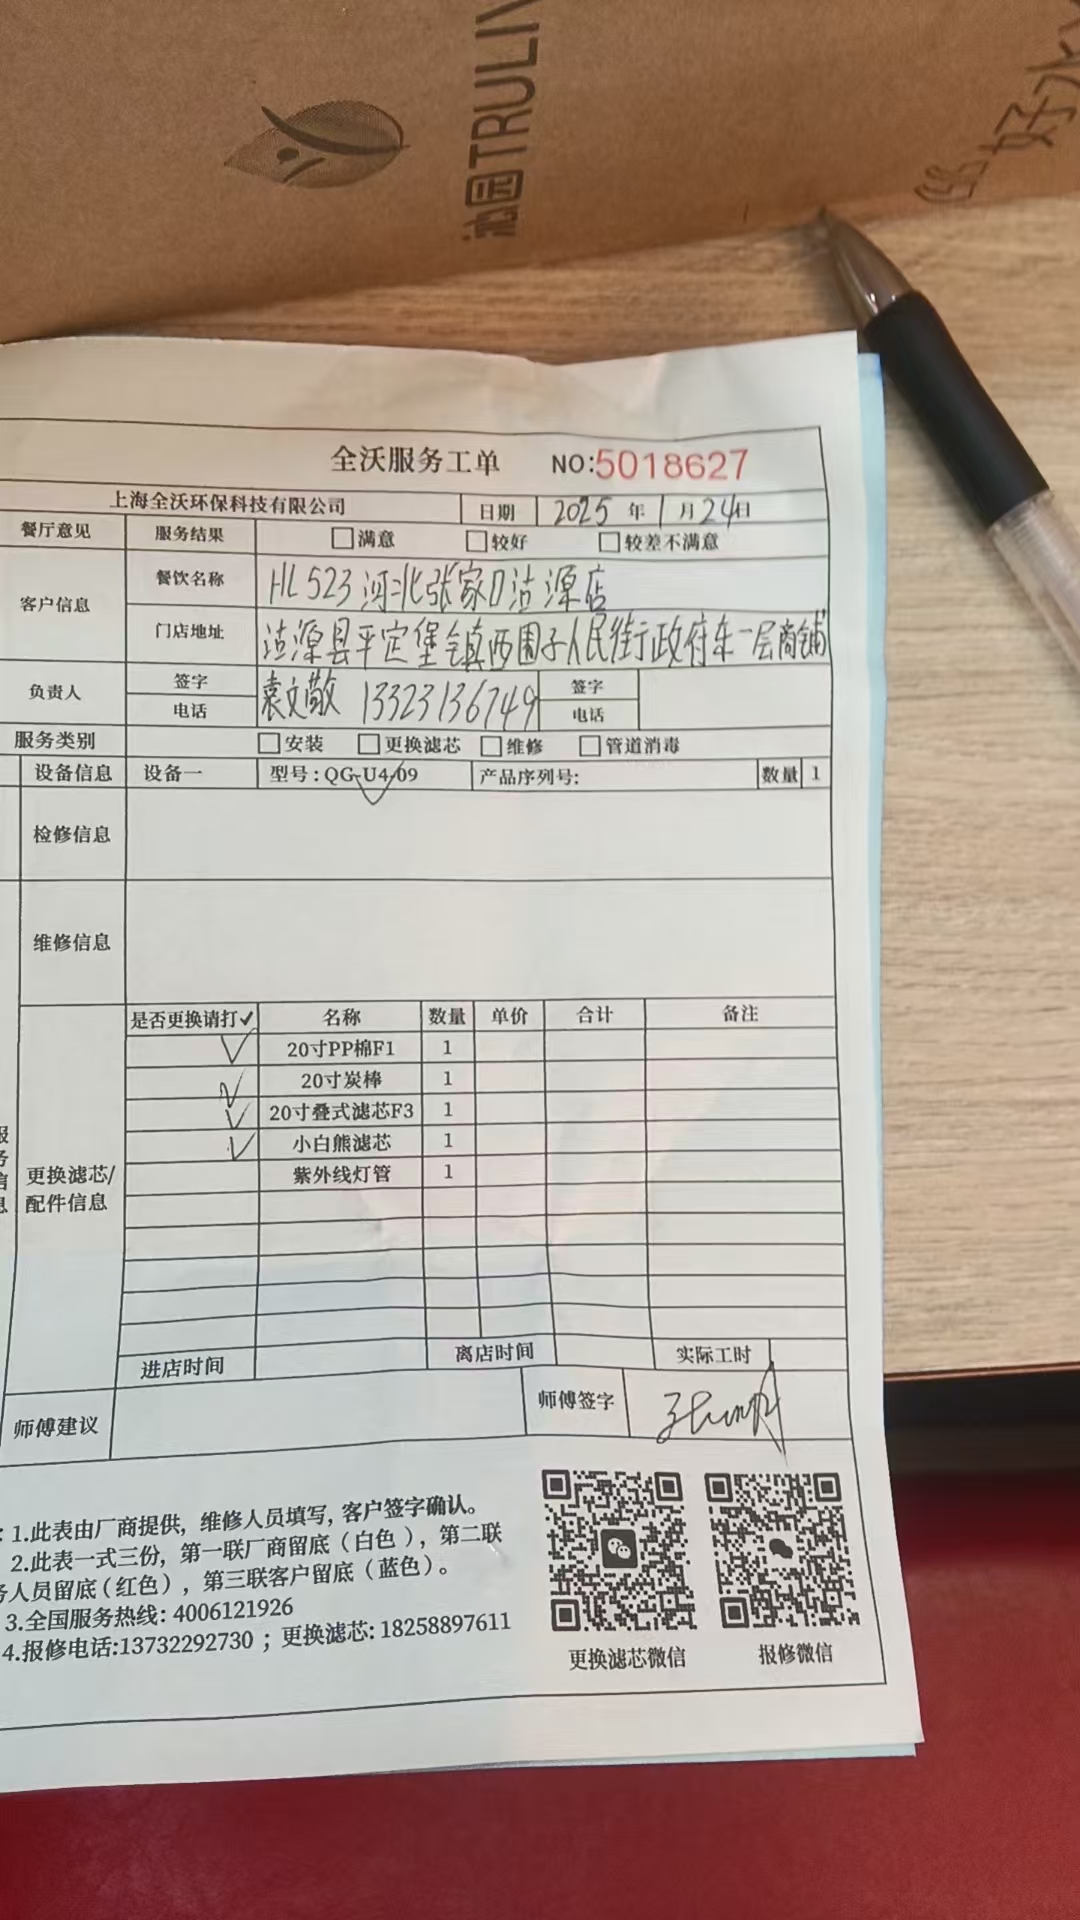 沁园TRULIV
好水
全沃服务工单 NO:5018627
上海全沃环保科技有限公司 日期 2025 年 1 月 24 日
餐厅意见 服务结果 □满意 □较好 □较差不满意
客户信息 餐饮名称 HL523河北张家口沽源店
门店地址 沽源县平定堡镇西围子人民街行政府东一层商铺
负责人 签字 袁文敬 签字
电话 13323136749 电话
服务类别 □安装 □更换滤芯 □维修 □管道消毒
设备信息 设备一 型号:QG-U4/09 ✓ 产品序列号: 数量 1
检修信息
维修信息
是否更换请打✓ 名称 数量 单价 合计 备注
✓ 20寸PP棉F1 1
✓ 20寸炭棒 1
✓ 20寸叠式滤芯F3 1
✓ 小白熊滤芯 1
紫外线灯管 1
更换滤芯/
配件信息
进店时间 离店时间 实际工时
师傅建议 师傅签字
: 1.此表由厂商提供，维修人员填写，客户签字确认。
2.此表一式三份，第一联厂商留底（白色），第二联
务人员留底（红色），第三联客户留底（蓝色）。
3.全国服务热线: 4006121926
4.报修电话:13732292730 ；更换滤芯: 18258897611
更换滤芯微信 报修微信